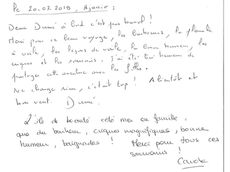 Le 20.07.2018, Ajaccio :
Deux Dumi à bord c'est pas banal !
Merci pour ce beau voyage, les bateaux, la planche
à voile, les leçons de voile, la bonne humeur, les
criques et les souvenirs. J'ai été heureux de
partager cette aventure avec les filles.
Ne change rien, c'est top ! A bientôt et
bon vent. Dumi.
L'île de beauté côté mer en famille,
que du bonheur, criques magnifiques, bonne
humeur, baignades ! Merci pour tous ces
souvenirs !
Carole